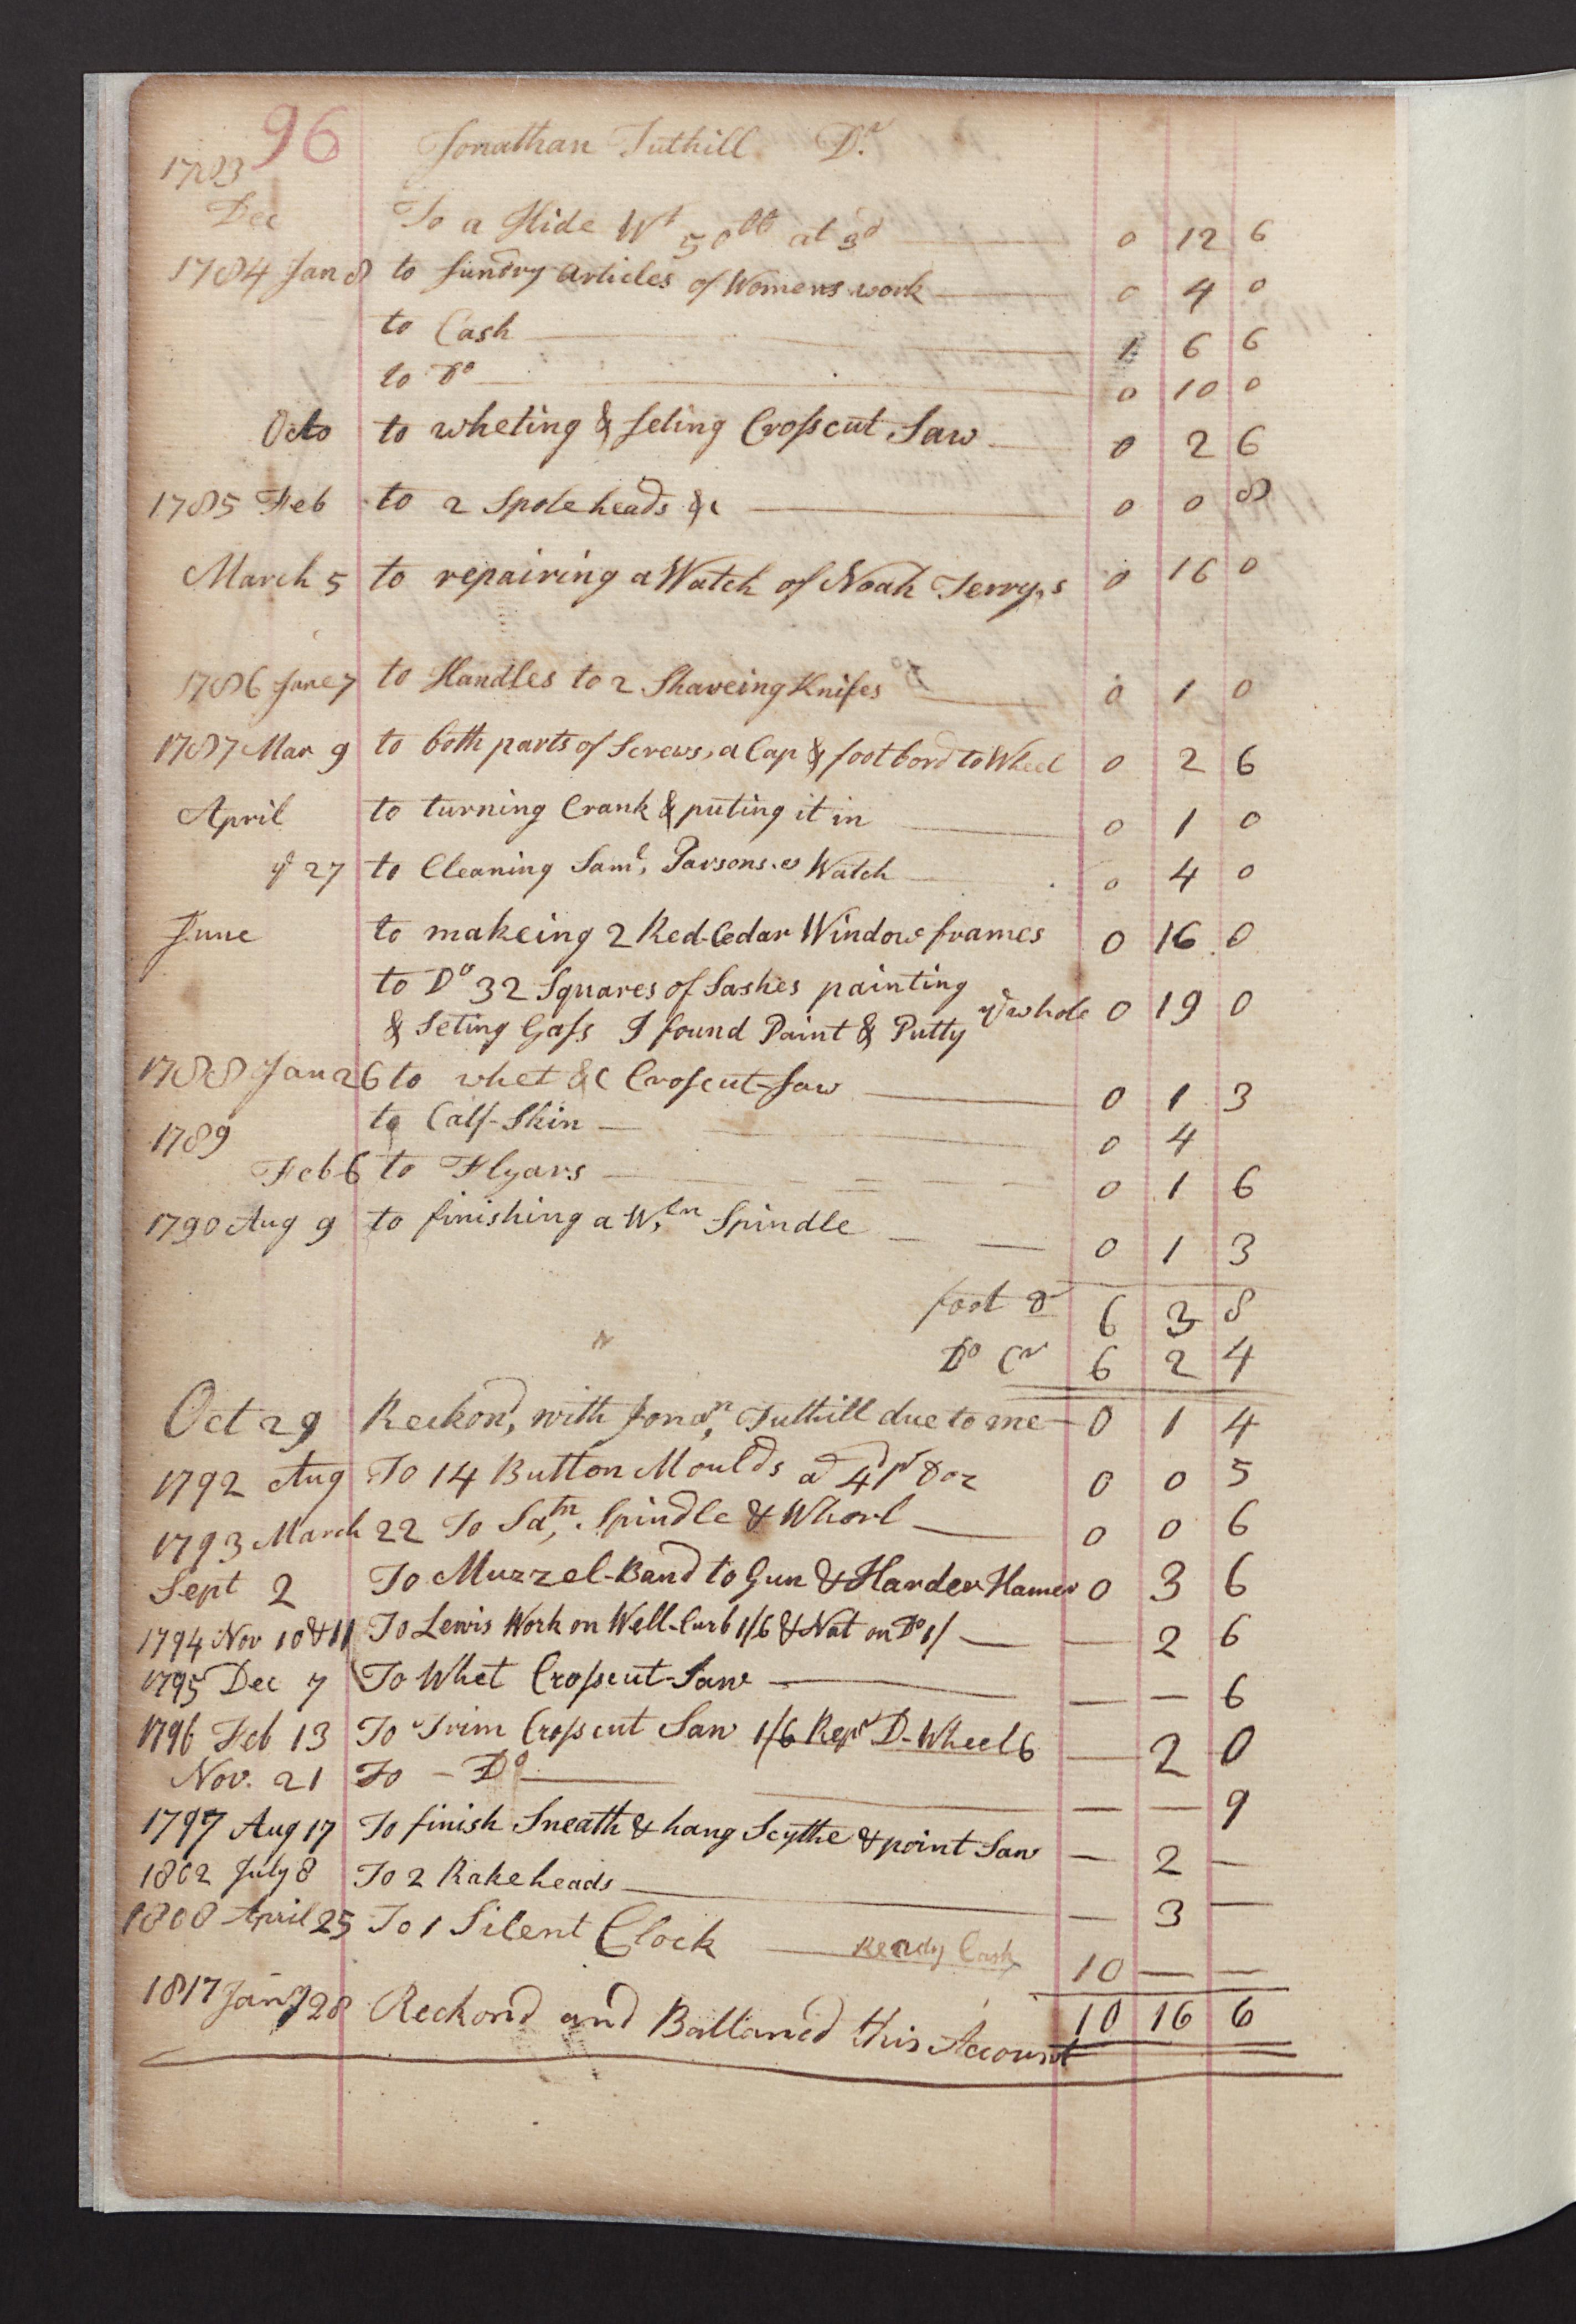 96
Jonathan Tuthill Dr
1783
Dec To a Hide Wt 50lb at 3d 0 12 6
1784 Jan 8 to sundry articles of Womens work 0 4 0
to Cash 1 6 6
to Do 0 10 0
Octo to wheting & seting Crosscut Saw 0 2 6
1785 Feb to 2 Spole heads &c 0 0 8
March 5 to repairing a Watch of Noah Terry,s 0 16 0
1786 June 7 to Handles to 2 Shaveing Knifes 0 1 0
1787 Mar 9 to both parts of Screws, a Cap & footbord to Wheel 0 2 6
April to turning Crank & puting it in 0 1 0
ye 27 to Cleaning Saml, Parsons.es Watch 0 4 0
June to makeing 2 Red-Cedar Window frames 0 16 0
to Do 32 Squares of Sashes painting
& Seting Gass I found Paint & Putty ye whole 0 19 0
1788 Jan 26 to whet &c Croscut-saw 0 1 3
to Calf-Skin 0 4
1789
Feb 6 to Flyars 0 1 6
1790 Aug 9 to finishing a W,ln Spindle 0 1 3
foot Dr 6 3 8
Do Cr 6 2 4
Oct 29 Reckon'd, with Jonan, Tuthill due to me 0 1 4
1792 Aug To 14 Button Moulds a 4d pr Doz 0 0 5
1793 March 22 To Sa,tn Spindle & Whorl 0 0 6
Sept 2 To Muzzel-Band to Gun & Harden Hamer 0 3 6
1794 Nov 10 & 11 To Lewis Work on Well-Curb 1/6 & Nat on Do 1/ — 2 6
1795 Dec 7 To Whet Crosscut-Saw — — 6
1796 Feb 13 To Trim Crosscut Saw 1/6 Repr D-Wheel 6 — 2 0
Nov. 21 To - Do — — 9
1797 Aug 17 To finish Sneath & hang Scythe & point Saw — 2 —
1802 July 8 To 2 Rake heads — 3 —
1808 April 25 To 1 Silent Clock Ready Cash 10 — —
10 16 6
1817 Jany 28 Reckond and Ballancd this Account